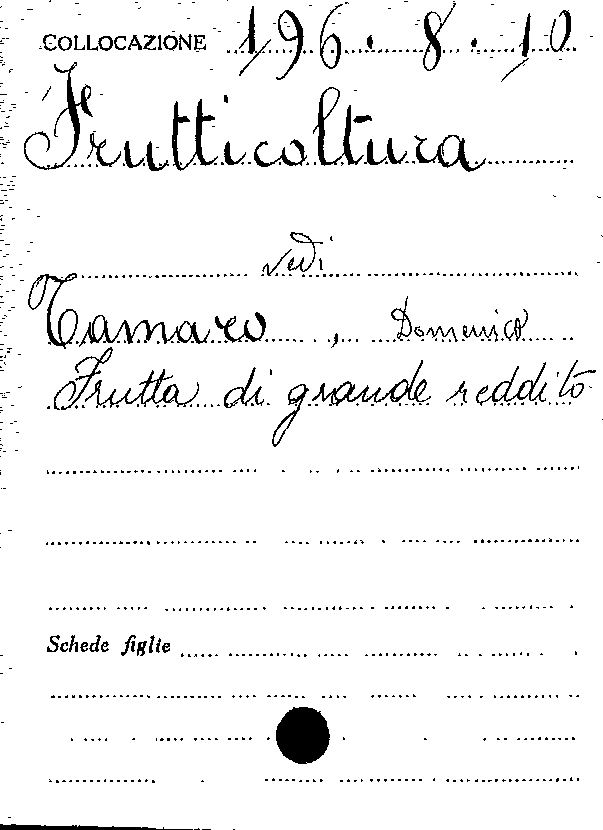 COLLOCAZIONE 196.8.10
Frutticoltura
vedi
Tamaro, Domenico
Frutta di grande reddito
Schede figlie